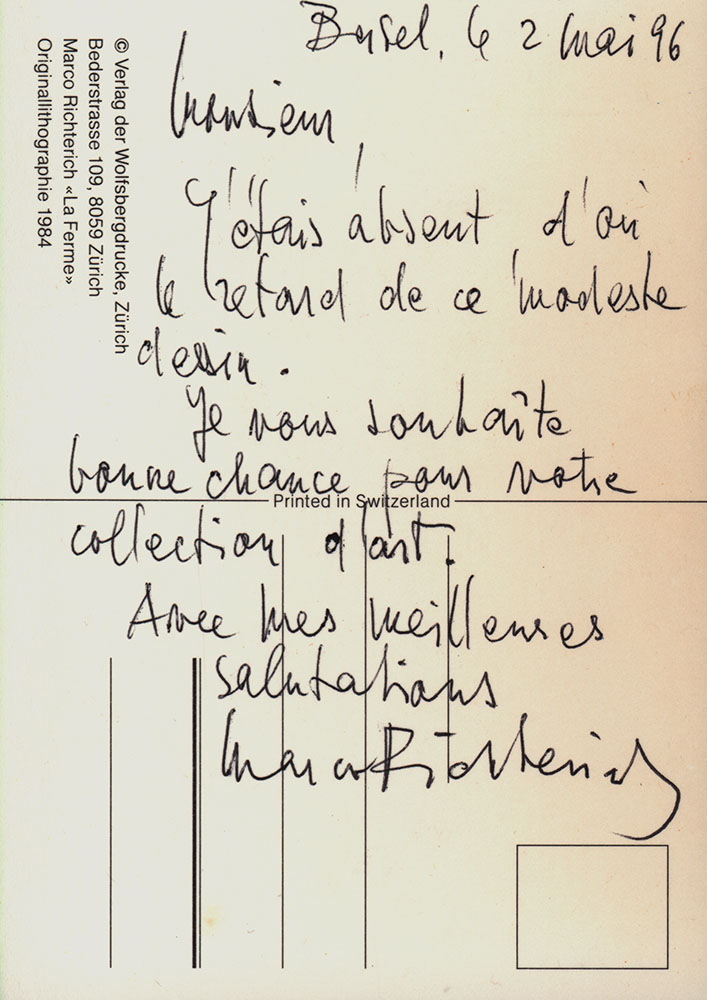 Basel, le 2 mai 96
Monsieur,
J'étais absent d'où
le retard de ce modeste
dessin.
Je vous souhaîte
bonne chance pour votre
collection d'art.
Avec mes meilleures
salutations
Marco Richterich
© Verlag der Wolfsbergdrucke, Zürich
Bederstrasse 109, 8059 Zürich
Marco Richterich «La Ferme»
Originallithographie 1984
Printed in Switzerland